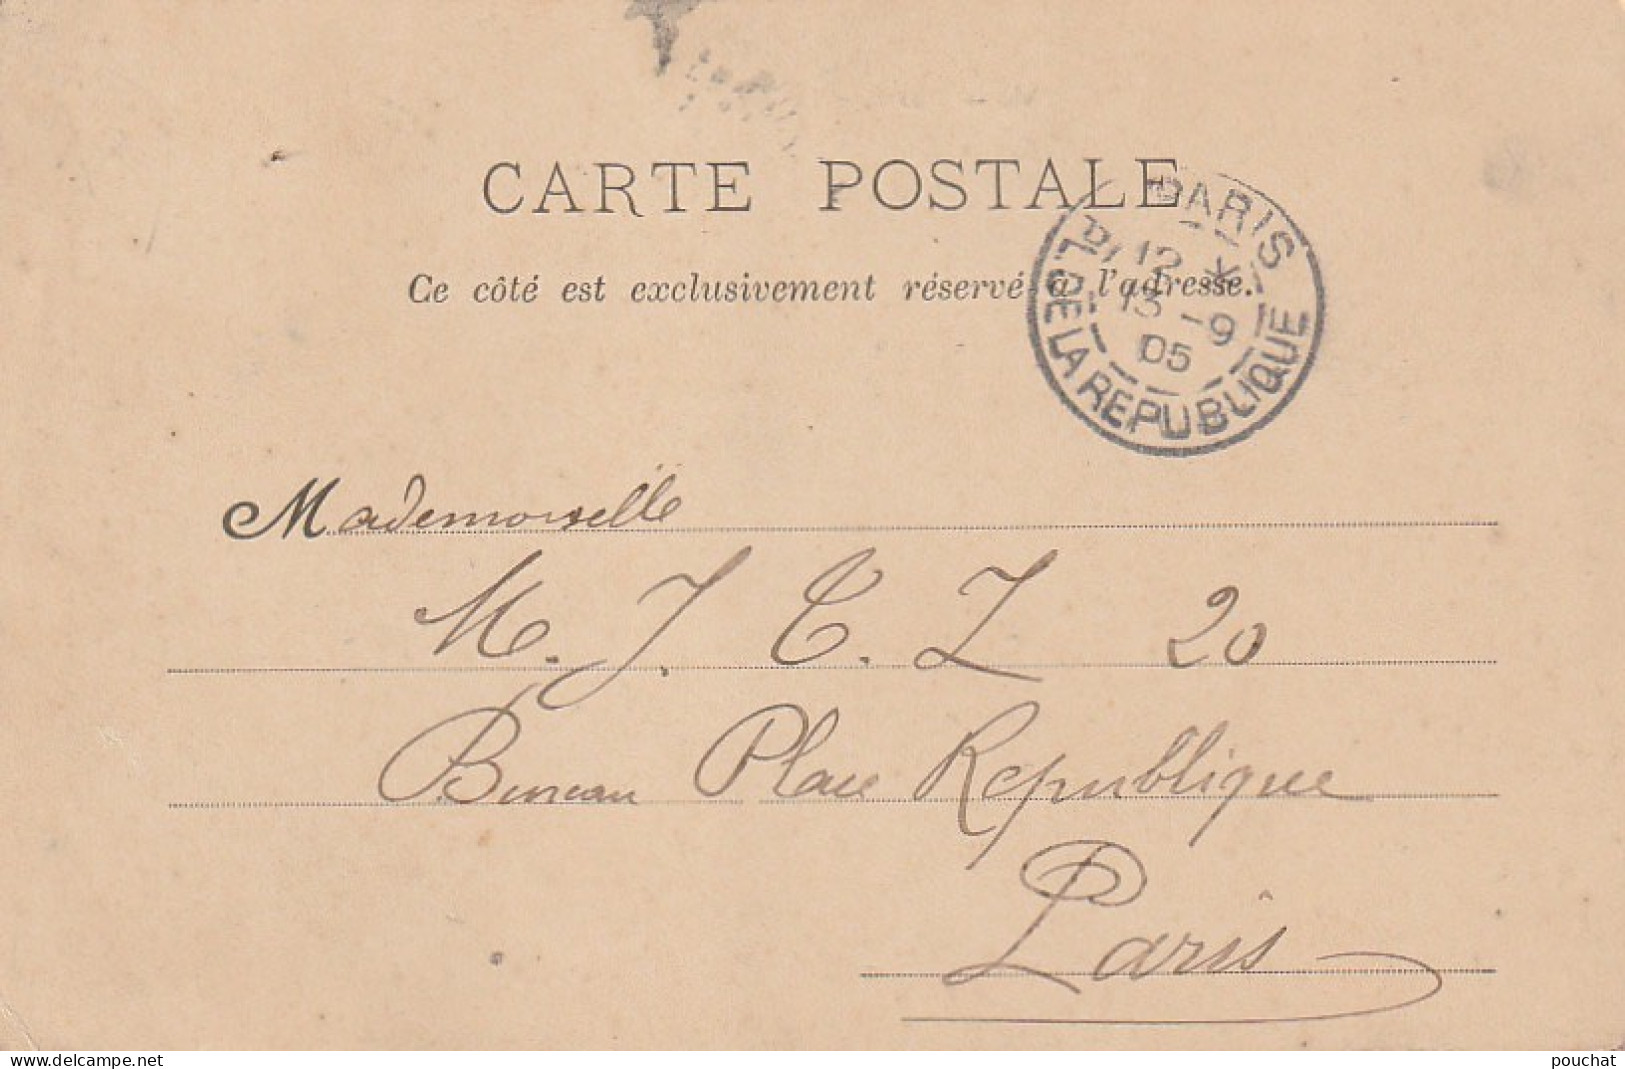 CARTE POSTALE
Ce côté est exclusivement réservé à l'adresse.
PARIS
PL. DE LA REPUBLIQUE
12 *
13 -9
05
Mademoiselle
M. J. C. L 20
Bureau Place Republique
Paris
www.delcampe.net
pouchat